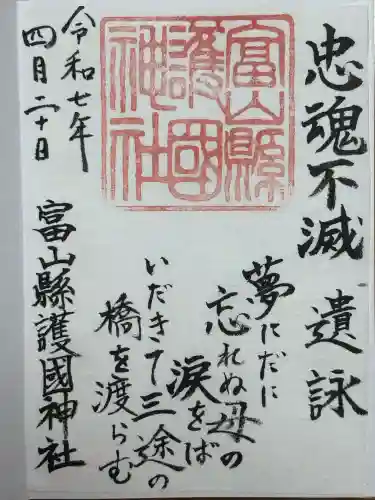 忠魂不滅 遺詠
夢にだに
忘れぬ母の
涙をば
いだきて三途の
橋を渡らむ
富山縣護國神社
令和七年
四月二十日
富山縣護國神社